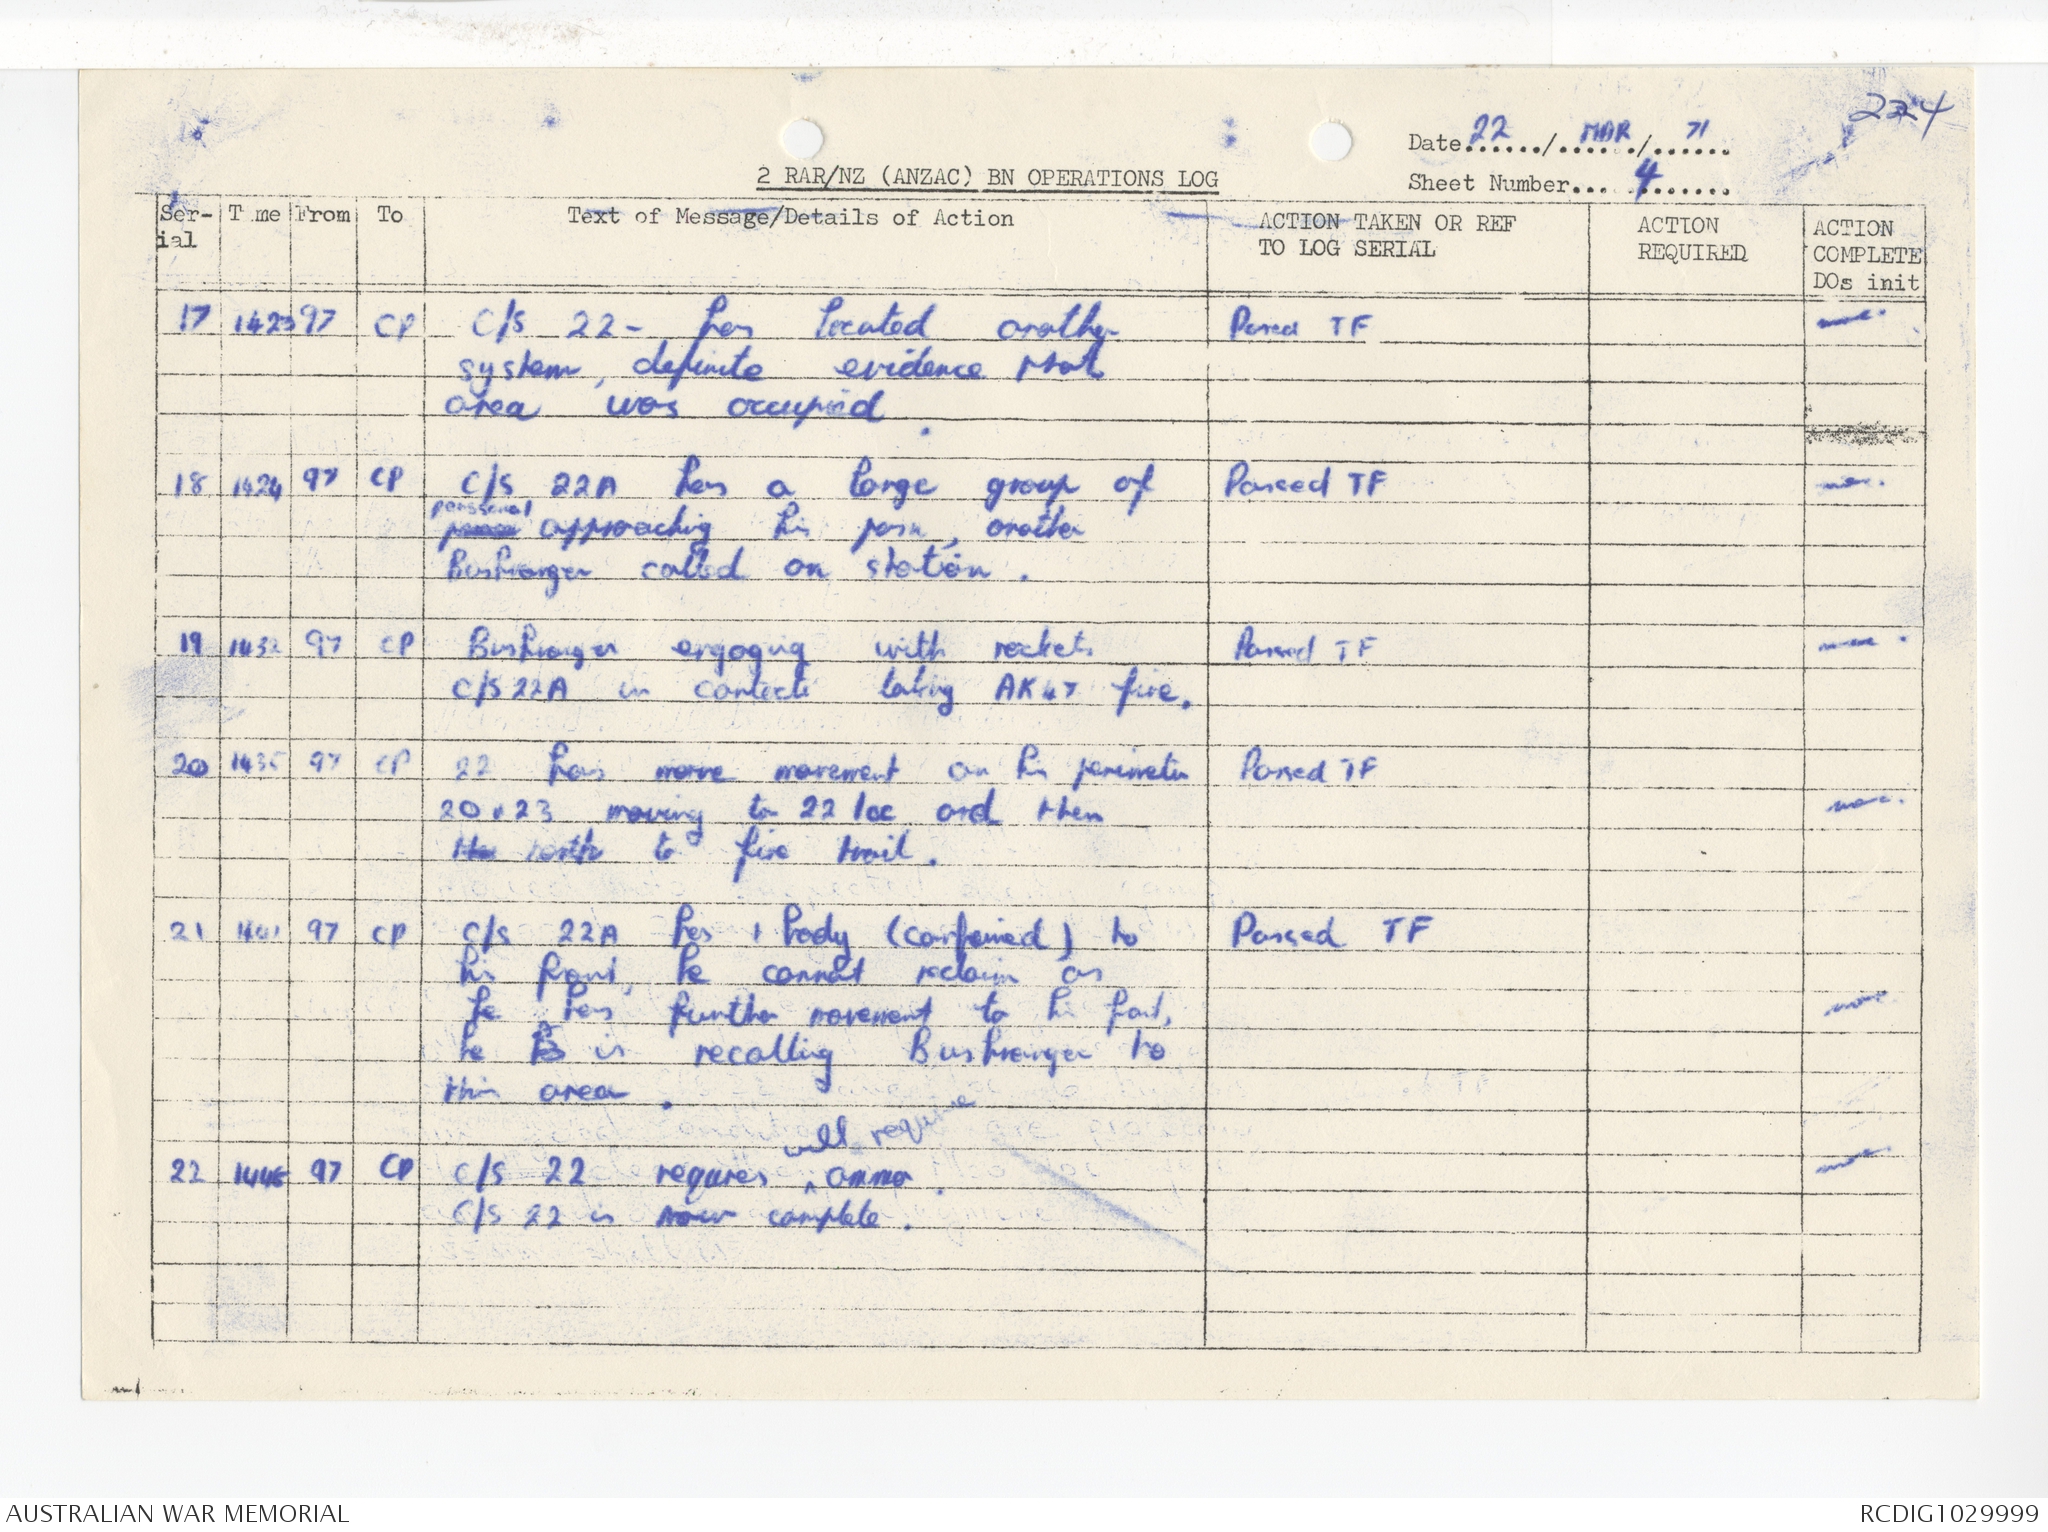 224
Date 22 / MAR / 71
2 RAR/NZ (ANZAC) BN OPERATIONS LOG
Sheet Number 4
Ser-ial Time From To Text of Message/Details of Action ACTION TAKEN OR REF TO LOG SERIAL ACTION REQUIRED ACTION COMPLETE DOs init
17 1423 97 CP C/S 22 - has located another Passed TF
system, definite evidence that
area was occupied.
18 1424 97 CP C/S 22A has a large group of Passed TF
personel
approaching his posn, another
Bushranger called on station.
19 1432 97 CP Bushranger engaging with rockets Passed TF
C/S 22A in contact taking AK47 fire.
20 1435 97 CP 22 has more movement on his perimeter Passed TF
20 & 23 moving to 22 loc and then
north to fire trail.
21 1441 97 CP C/S 22A has 1 body (confirmed) to Passed TF
his front, he cannot reclaim as
he has further movement to his front,
he is recalling Bushranger to
this area.
will require
22 97 CP C/S 22 requires ammo.
C/S 22 is now complete.
AUSTRALIAN WAR MEMORIAL
RCDIG1029999